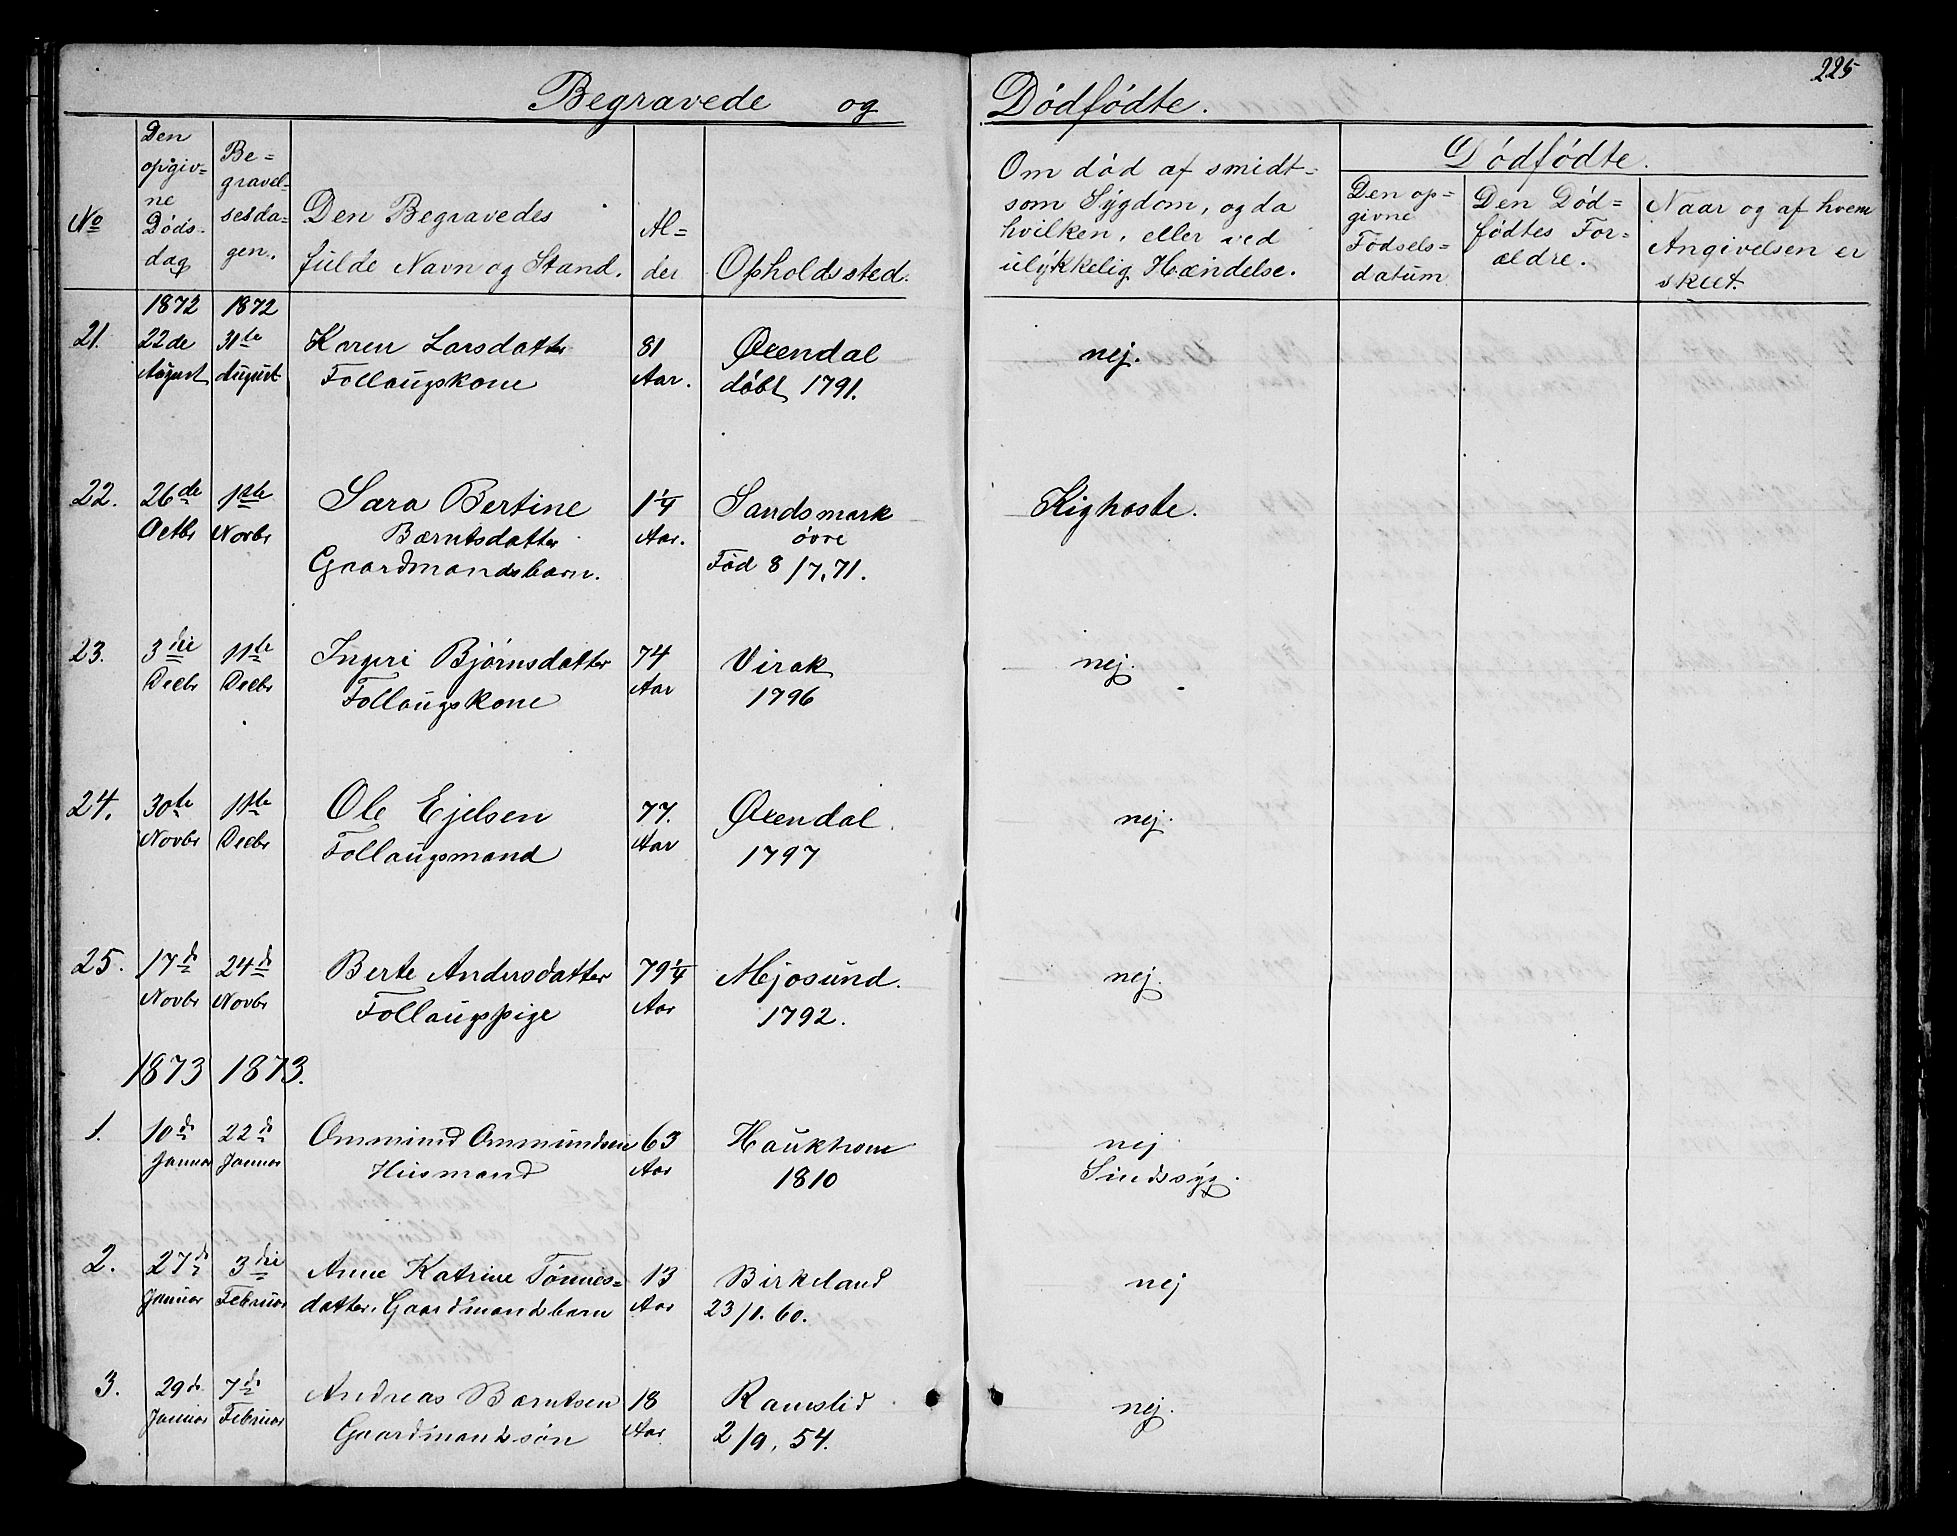 225
Begravede og Dødfødte.
No
Den opgivne Dødsdag
Begravelsesdagen.
Den Begravedes fulde Navn og Stand.
Alder
Opholdssted.
Om død af smidtsom Sygdom, og da hvilken, eller ved ulykkelig Hændelse.
Dødfødte.
Den opgivne Fødselsdatum
Den Dødfødtes Forældre.
Naar og af hvem Angivelsen er skeet.
1872 1872
21. 22de 31te Karen Larsdatter 81 Øxendal nej.
August August Follaugskone Aar. døbt 1791.
22. 26de 1ste Sara Bertine 1 1/4 Sandsmark Kighoste.
Octbr Novbr Berntsdatter Aar. øvre
Gaardmandsbarn. Fød 8/7.71.
23. 3die 11te Ingeri Bjørnsdatter 74 Virak nej.
Decbr Decbr Follaugskone Aar 1796
24. 30te 11te Ole Ejelsen 77. Øxendal. nej.
Novbr Decbr Follaugsmand Aar 1797
25. 17d 24d Berte Andersdatter 79 1/4 Mjosund. nej.
Novbr Novbr Follaugspige Aar 1792.
1873 1873.
1. 10d 22d Ommund Ommundsen 63 Haukhom nej.
Januar Januar Husmand Aar 1810 Sindssyg.
2. 27d 3die Anne Katrine Tønnes= 13 Birkeland nej
Januar Februar datter, Gaardmandsbarn Aar 23/1.60.
3. 29d 7d Andreas Berntsen 18 Ramslid nej.
Januar Februar Gaardmandssøn Aar 2/9, 54.